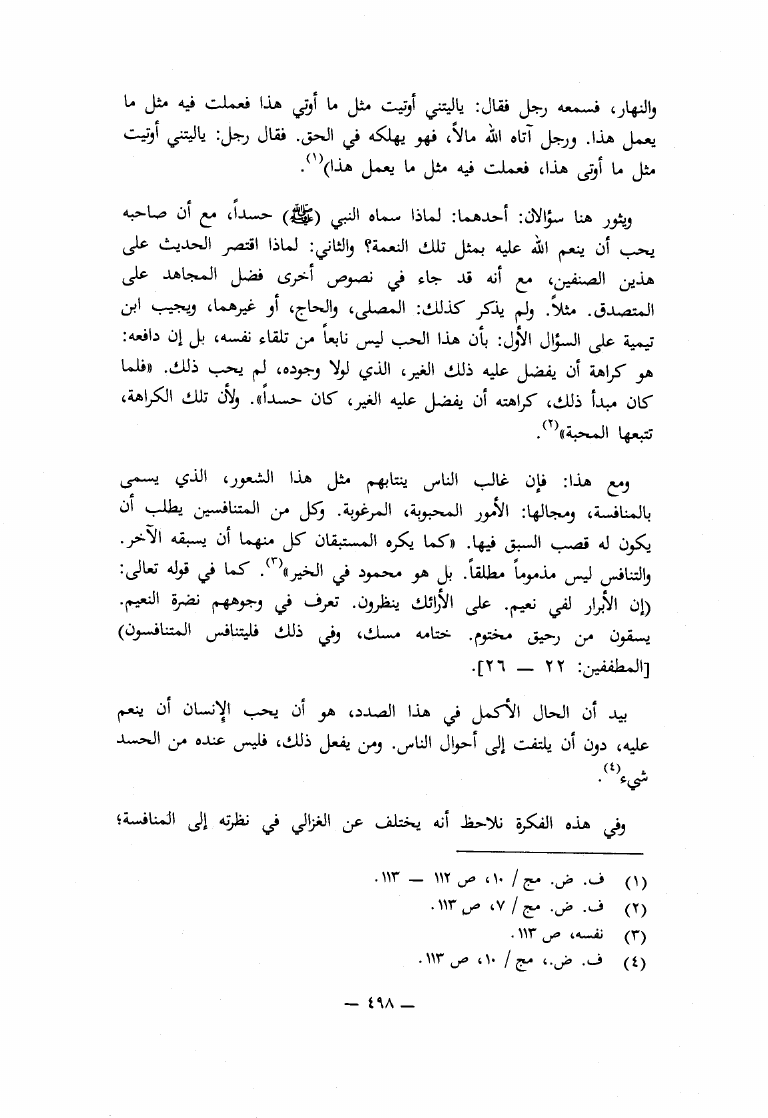 والنهار، فسمعه رجل فقال: ياليتني أوتيت مثل ما أوتي هذا فعملت فيه مثل ما
يعمل هذا. ورجل آتاه الله مالاً، فهو يهلكه في الحق. فقال رجل: ياليتني أوتيت
مثل ما أوتى هذا، فعملت فيه مثل ما يعمل هذا)(١).
ويثور هنا سؤالان: أحدهما: لماذا سماه النبي (ﷺ) حسداً، مع أن صاحبه
يحب أن ينعم الله عليه بمثل تلك النعمة؟ والثاني: لماذا اقتصر الحديث على
هذين الصنفين، مع أنه قد جاء في نصوص أخرى فضل المجاهد على
المتصدق. مثلاً. ولم يذكر كذلك: المصلى، والحاج، أو غيرهما، ويجيب ابن
تيمية على السؤال الأول: بأن هذا الحب ليس نابعاً من تلقاء نفسه، بل إن دافعه:
هو كراهة أن يفضل عليه ذلك الغير، الذي لولا وجوده، لم يحب ذلك. «فلما
كان مبدأ ذلك، كراهته أن يفضل عليه الغير، كان حسداً». ولأن تلك الكراهة،
تتبعها المحبة»(٢).
ومع هذا: فإن غالب الناس ينتابهم مثل هذا الشعور، الذي يسمى
بالمنافسة، ومجالها: الأمور المحبوبة، المرغوبة. وكل من المتنافسين يطلب أن
يكون له قصب السبق فيها. «كما يكره المستبقان كل منهما أن يسبقه الآخر.
والتنافس ليس مذموماً مطلقاً. بل هو محمود في الخير»(٣). كما في قوله تعالى:
(إن الأبرار لفي نعيم. على الأرائك ينظرون. تعرف في وجوههم نضرة النعيم.
يسقون من رحيق مختوم. ختامه مسك، وفي ذلك فليتنافس المتنافسون)
[المطففين: ٢٢ — ٢٦].
بيد أن الحال الأكمل في هذا الصدد، هو أن يحب الإنسان أن ينعم
عليه، دون أن يلتفت إلى أحوال الناس. ومن يفعل ذلك، فليس عنده من الحسد
شيء(٤).
وفي هذه الفكرة نلاحظ أنه يختلف عن الغزالي في نظرته إلى المنافسة؛
(١) ف. ض. مج / ١٠، ص ١١٢ — ١١٣.
(٢) ف. ض. مج / ٧، ص ١١٣.
(٣) نفسه، ص ١١٣.
(٤) ف. ض.، مج / ١٠، ص ١١٣.
— ٤٩٨ —